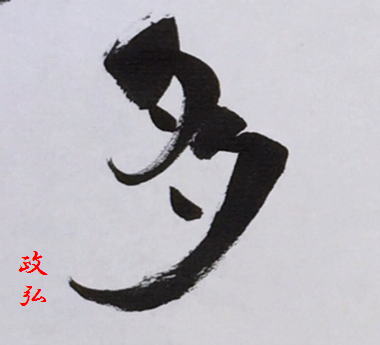 多
政弘